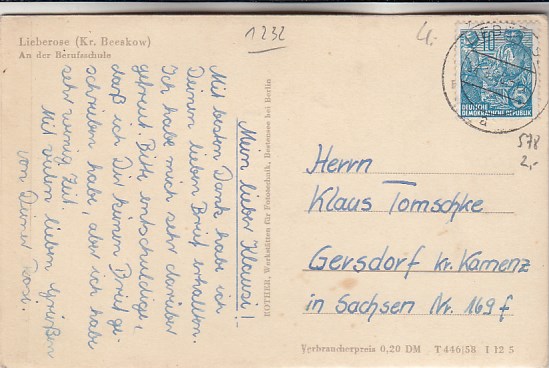 Lieberose (Kr. Beeskow)
An der Berufsschule
1232
4,-
10
DEUTSCHE
DEMOKRATISCHE REPUBLIK
a
578
2,-
Mein lieber Klausi!
Mit besten Dank habe ich
Deinen lieben Brief erhalten.
Ich habe mich sehr darüber
gefreut. Bitte, entschuldige,
daß ich Dir keinen Brief ge-
schrieben habe, aber ich habe
sehr wenig Zeit.
Mit vielen lieben Grüßen
von Deiner
ROTHER, Werkstätten für Fototechnik, Bestensee bei Berlin
Herrn
Klaus Tomschke
Gersdorf kr. Kamenz
in Sachsen Nr. 169f
Verbraucherpreis 0,20 DM T 446/58 I 12 5